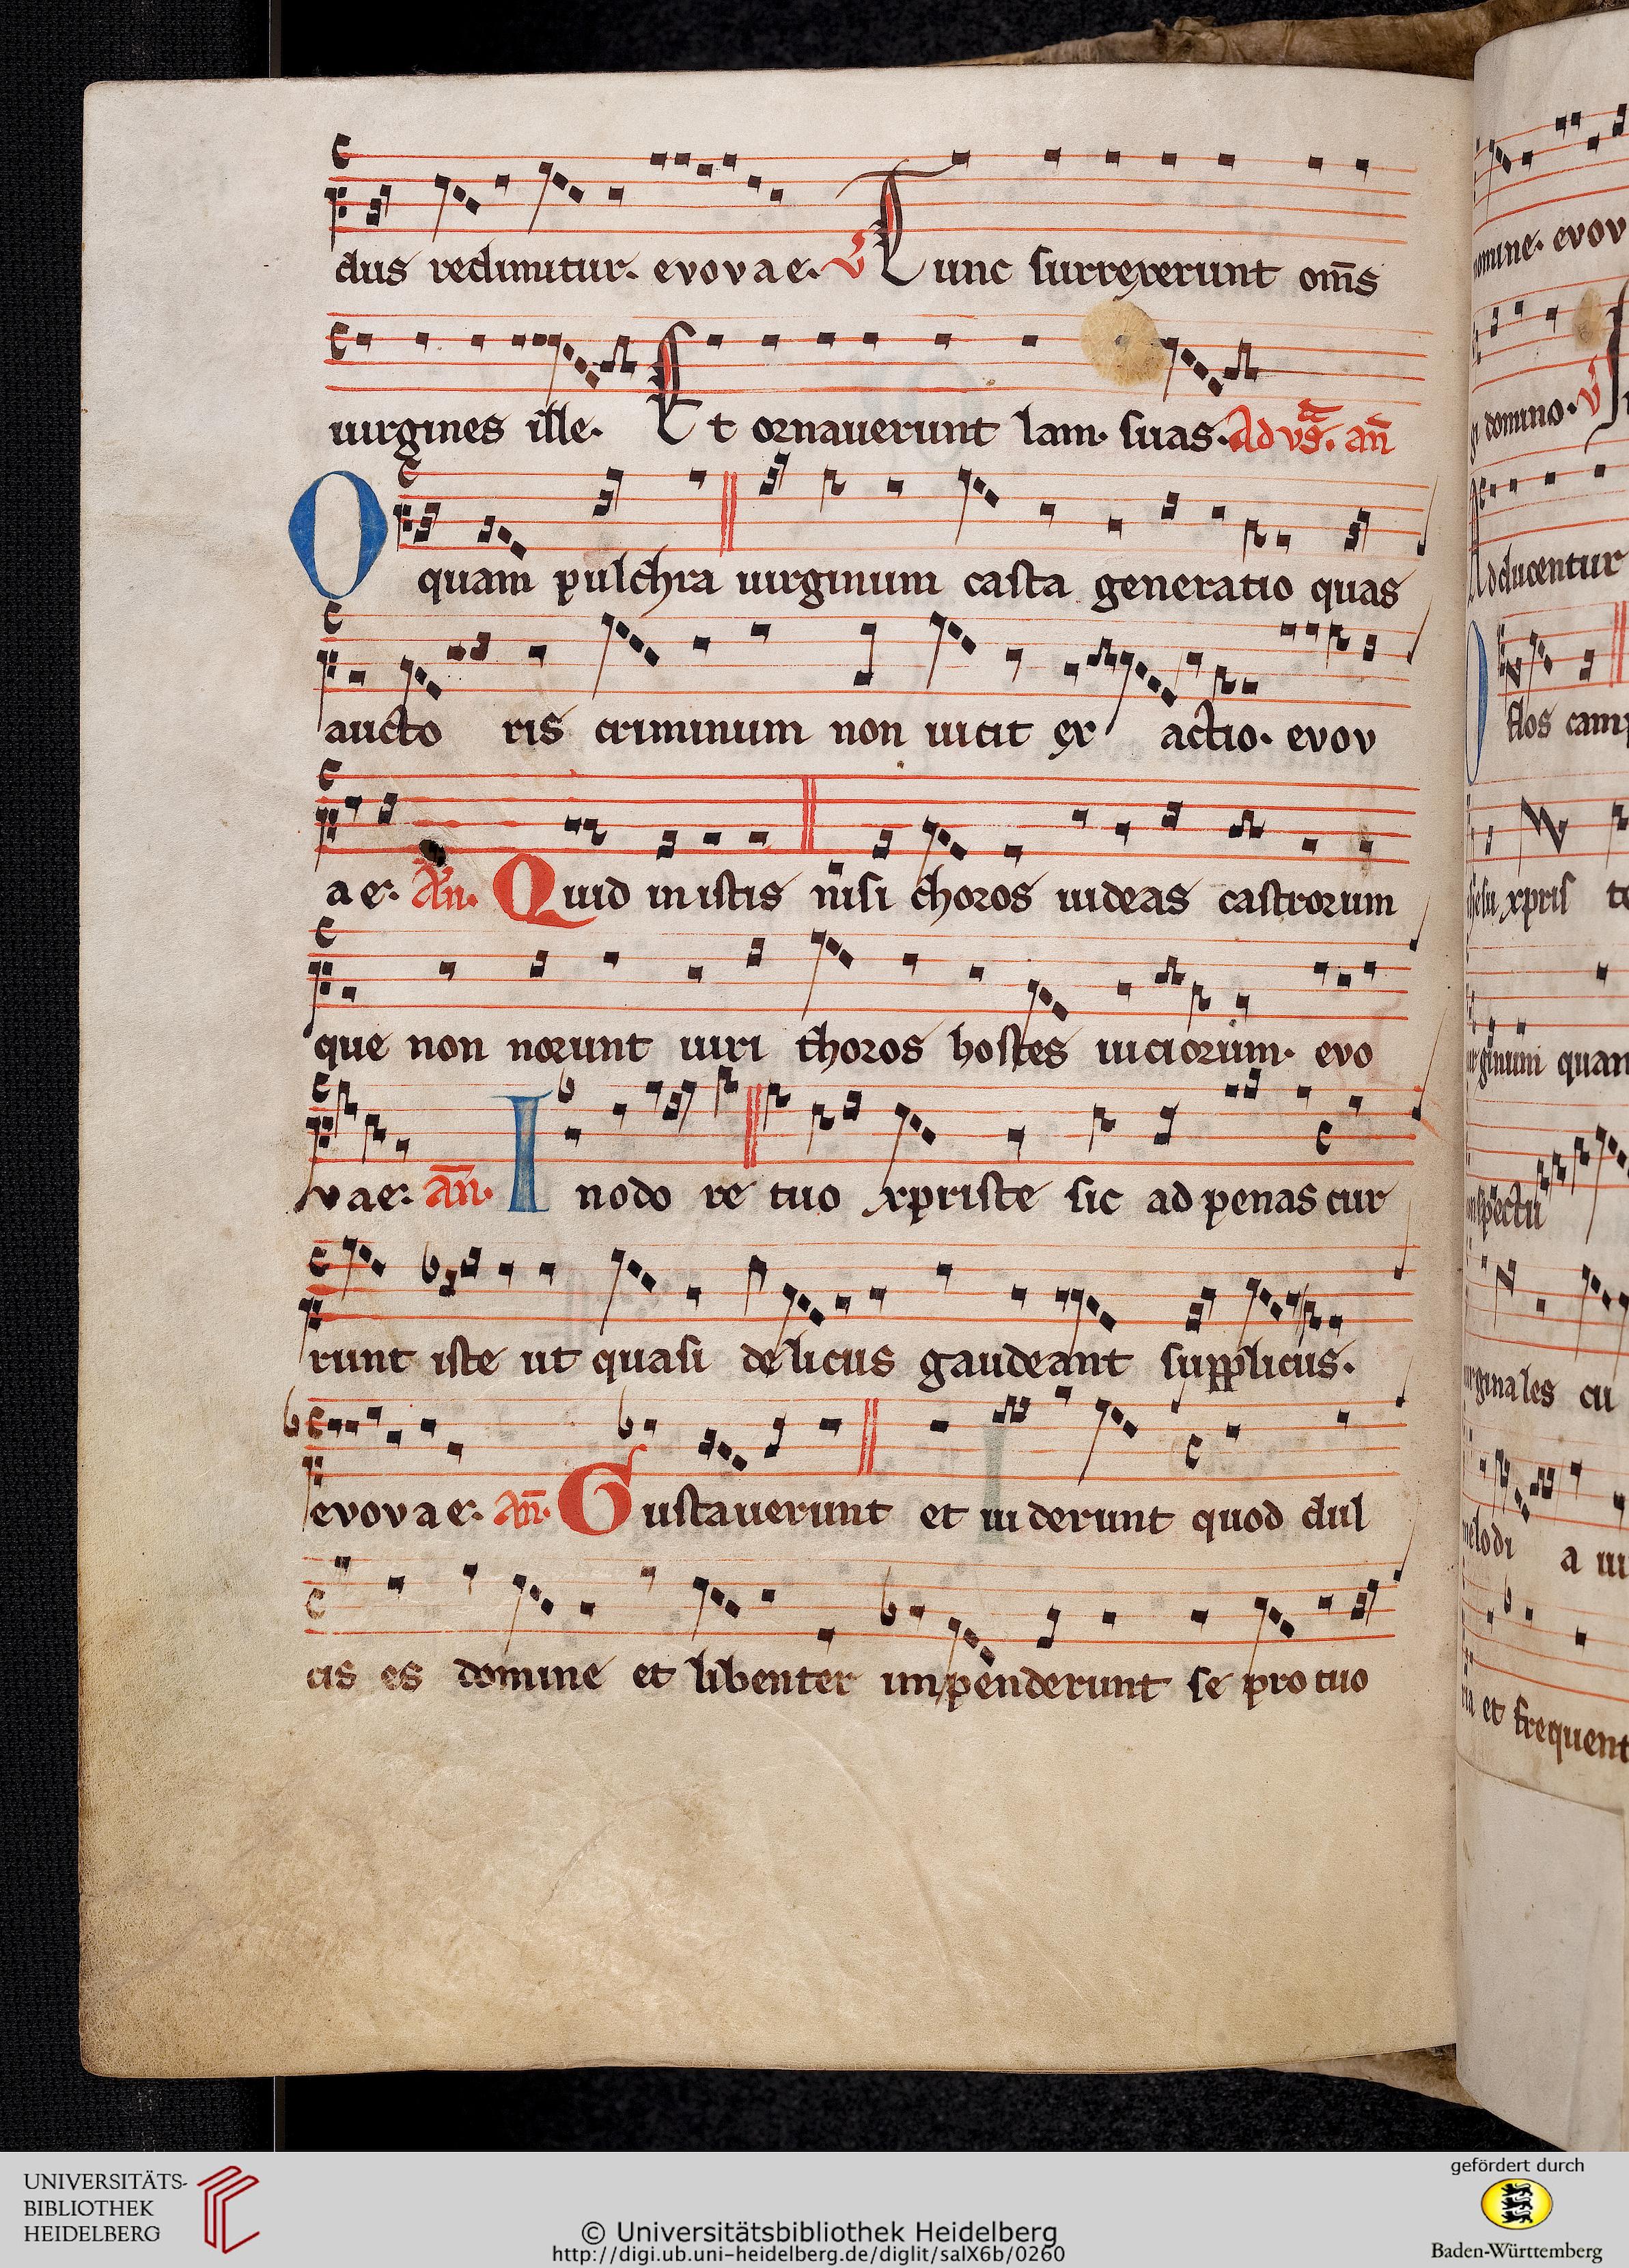 dus redimitur. evovae. V Tunc surrexerunt om̄s
uirgines ille. Et ornauerunt lam. suas. Ad
O quam pulchra uirginum casta generatio quas
auctoris criminum non uicit exactio. evov
ae. An. Quid in istis nisi choros uideas castrorum
que non norunt uiri thoros hostes uiciorum. evo
vae. an̄. In odore tuo xpriste sic ad penas cur
runt iste ut quasi delicиs gaudeant supplicus.
evovae. an̄. Gustauerunt et uiderunt quod dul
cis es domine et libenter impenderunt se pro tuo
omine. evov
domino. V
Adducentur
flos cam
hesu xpris te
urginum quan
nspectu
urginales cu
melodi a ui
ria et frequent
UNIVERSITÄTS-
BIBLIOTHEK
HEIDELBERG
© Universitätsbibliothek Heidelberg
http://digi.ub.uni-heidelberg.de/diglit/salX6b/0260
gefördert durch
Baden-Württemberg